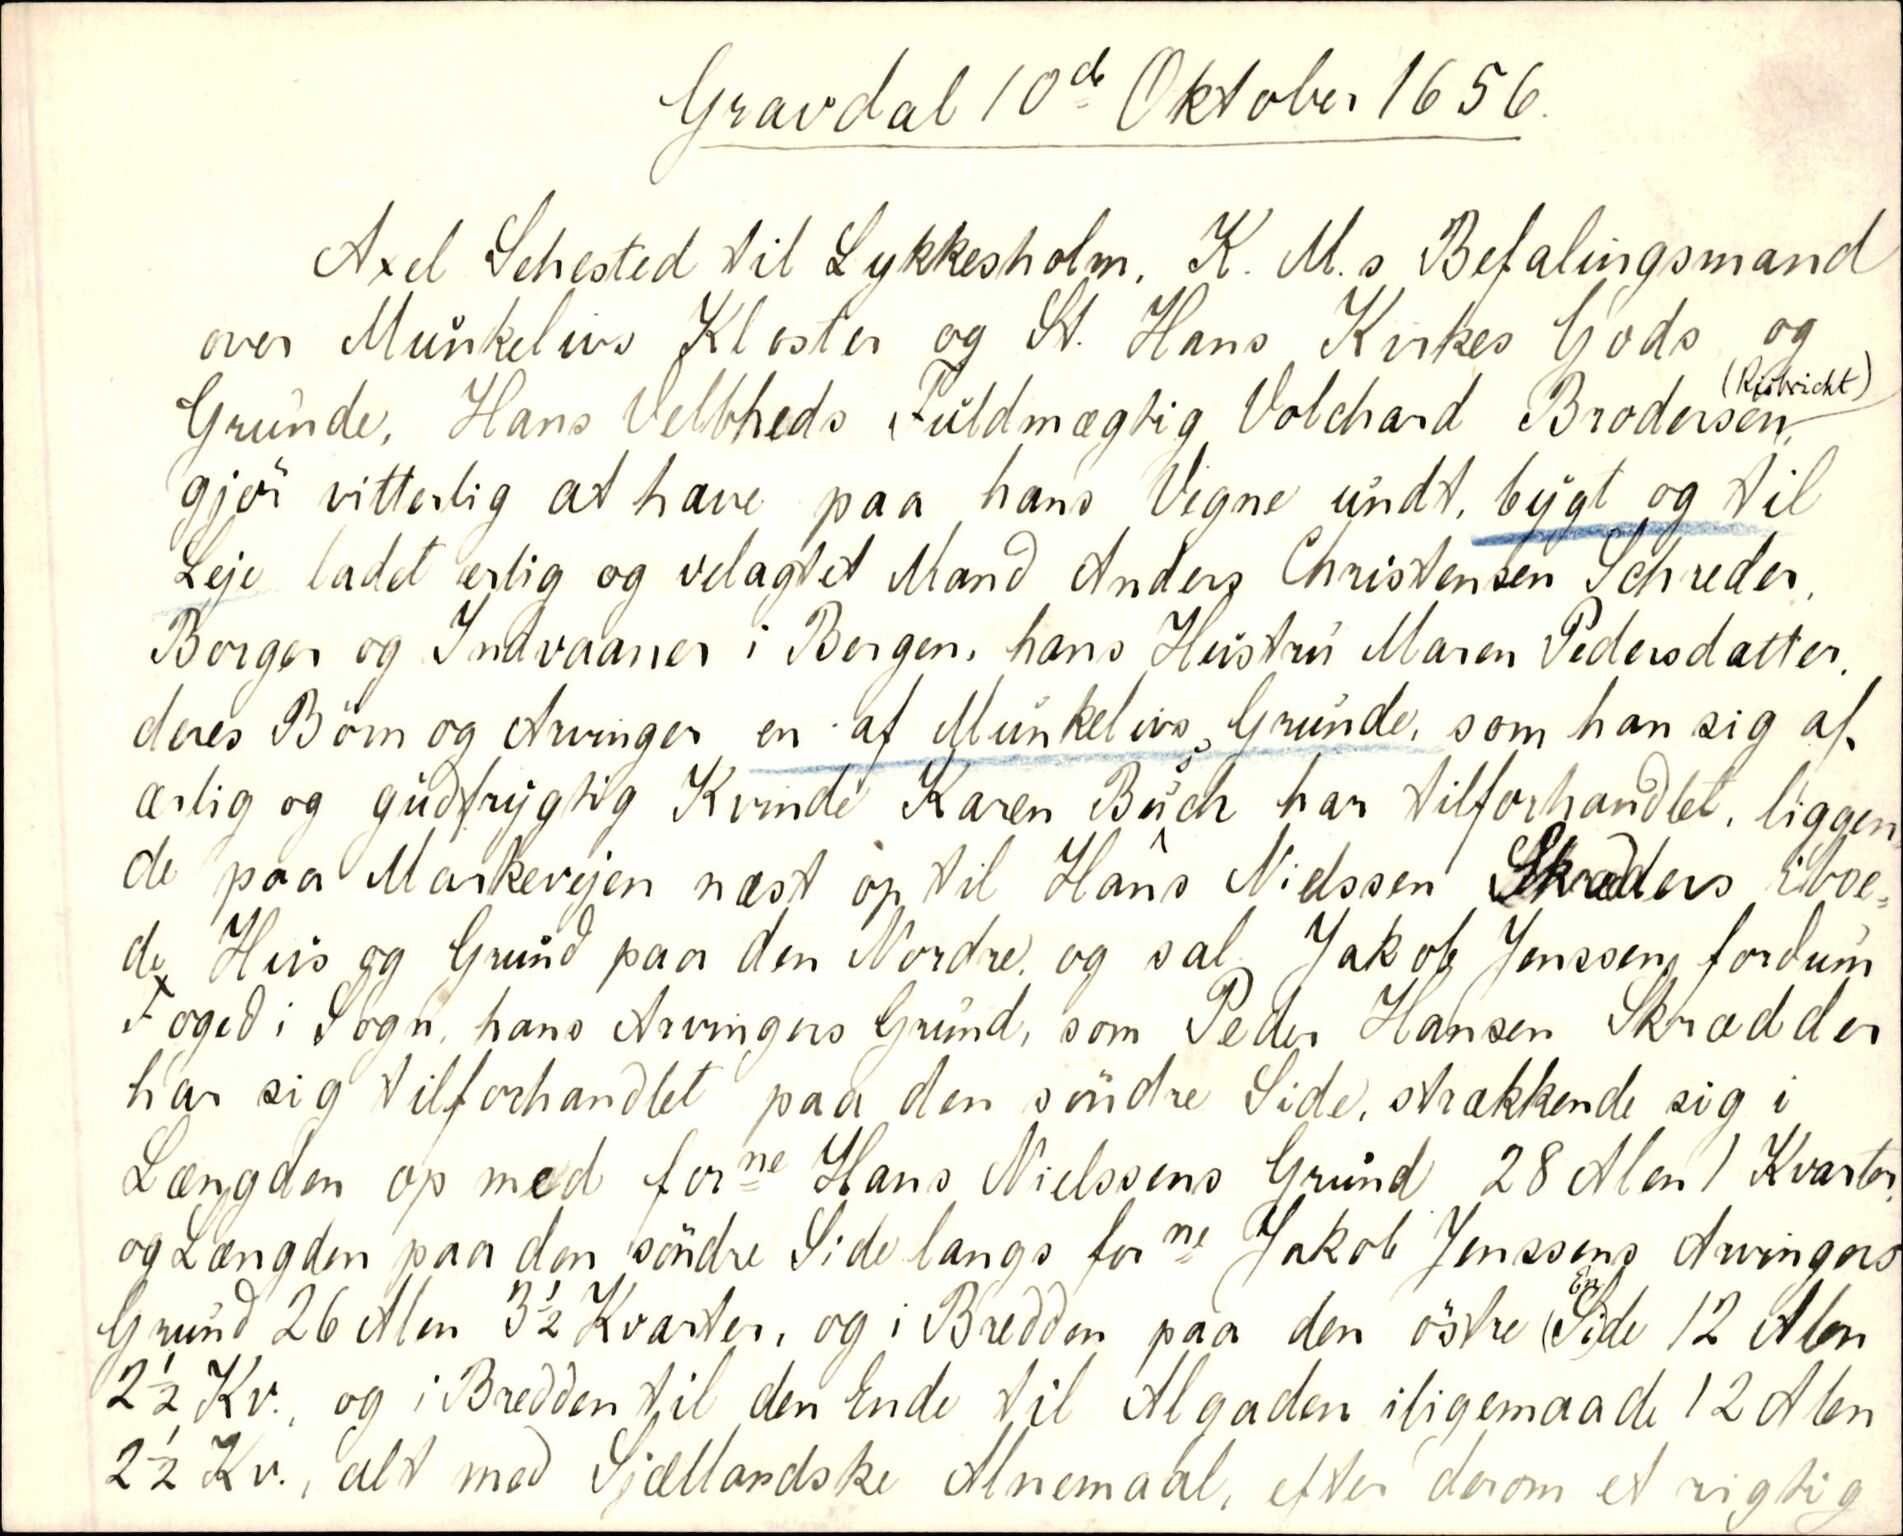 Gravdal 10de Oktober 1656.
Axel Sehested til Lykkesholm, K. M.s Befalingsmand
over Munkelivs Kloster og St. Hans Kirkes Gods og
(Risbricht)
Grunde, Hans Velbheds Fuldmægtig Volchard Brodersen,
gjör vitterlig at have paa hans Vegne undt, bygt og til
Leje ladet ærlig og velagtet Mand Anders Christensen Schreder,
Borger og Indvaaner i Bergen, hans Hustru Maren Pedersdatter,
deres Börn og Arvinger en af Munkelivs Grunde, som han sig af
ærlig og gudfrygtig Kvinde Karen Buch har tilforhandlet, liggen,
de paa Markevejen næst op til Hans Nielssen Skrædders iboe=
de Hus og Grund paa den Nordre, og sal. Jakob Jenssen, fordum
Foged i Sogn, hans Arvingers Grund, som Peder Hansen Skrædder
har sig tilforhandlet paa den söndre Side, strækkende sig i
Længden op med forne Hans Nielssens Grund 28 Alen 1 Kvarter,
og Længden paa den söndre Side langs forne Jakob Jenssens Arvingers
Grund 26 Alen 3½ Kvarter, og i Bredden paa den östre (En) Side 12 Alen
2½ Kv., og i Bredden til den Ende til Algaden iligemaade 12 Alen
2½ Kv., alt med Sjællandske Alnemaal, efter derom et rigtig